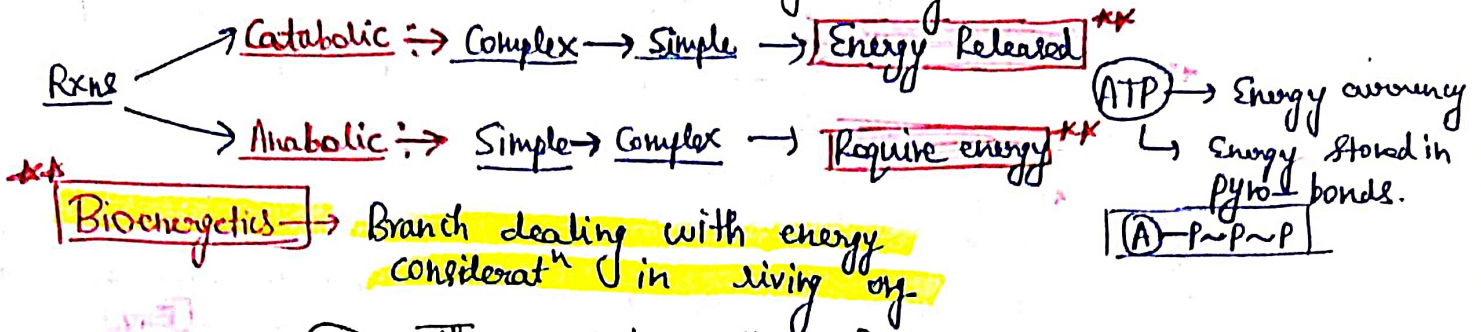 Rxns
Catabolic ÷→ Complex → Simple → Energy Released **
Anabolic ÷→ Simple → Complex → Require energy **
ATP → Energy currency
↳ Energy stored in
pyro-P bonds.
A-P~P~P
** Bioenergetics → Branch dealing with energy
consideratⁿ in living org-